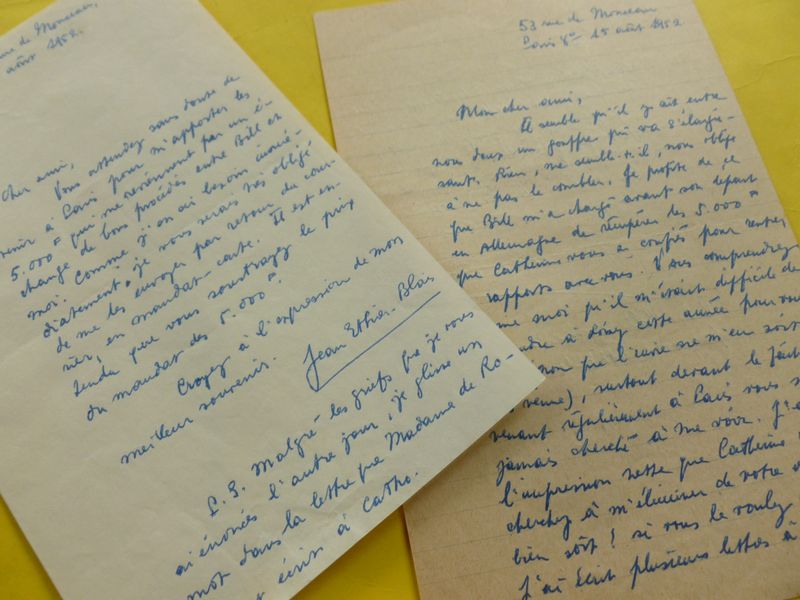 rue de Monceau,
août 1952.
Cher ami,
Vous attendez sans doute de
venir à Paris pour m'apporter les
5.000 F qui me reviennent par un é-
change de bons procédés entre Bill et
moi. Comme j'en ai besoin immé-
diatement, je vous serais très obligé
de me les envoyer par retour du cour-
rier, en mandat-carte. Il est en-
tendu que vous soustrayez le prix
du mandat des 5.000 F.
Croyez à l'expression de mon
meilleur souvenir.
Jean Ethier-Blais
P.S. Malgré les griefs que je vous
ai énoncés l'autre jour, je glisse un
mot dans la lettre que Madame de Ro-
écrit à Catho.
53 rue de Monceau
Paris 8e 15 août 1952
Mon cher ami,
Il semble qu'il y ait entre
nous deux un gouffre qui va s'élargis-
sant. Rien, me semble-t-il, nous oblige
à ne pas le combler. Je profite de ce
que Bill m'a chargé avant son départ
en Allemagne de récupérer les 5.000 F
que Catherine vous a confiés pour rentrer
rapports avec vous. Vous comprendrez
me moi qu'il m'était difficile de
dre à cette année pour vous
non que l'envie ne m'en soit
venue), surtout devant le fait
venant régulièrement à Paris vous n
jamais cherché à me voir. J'a
l'impression nette que Catherine
cherchez à m'éliminer de votre
bien soit! si vous le voulez
J'ai écrit plusieurs lettres à